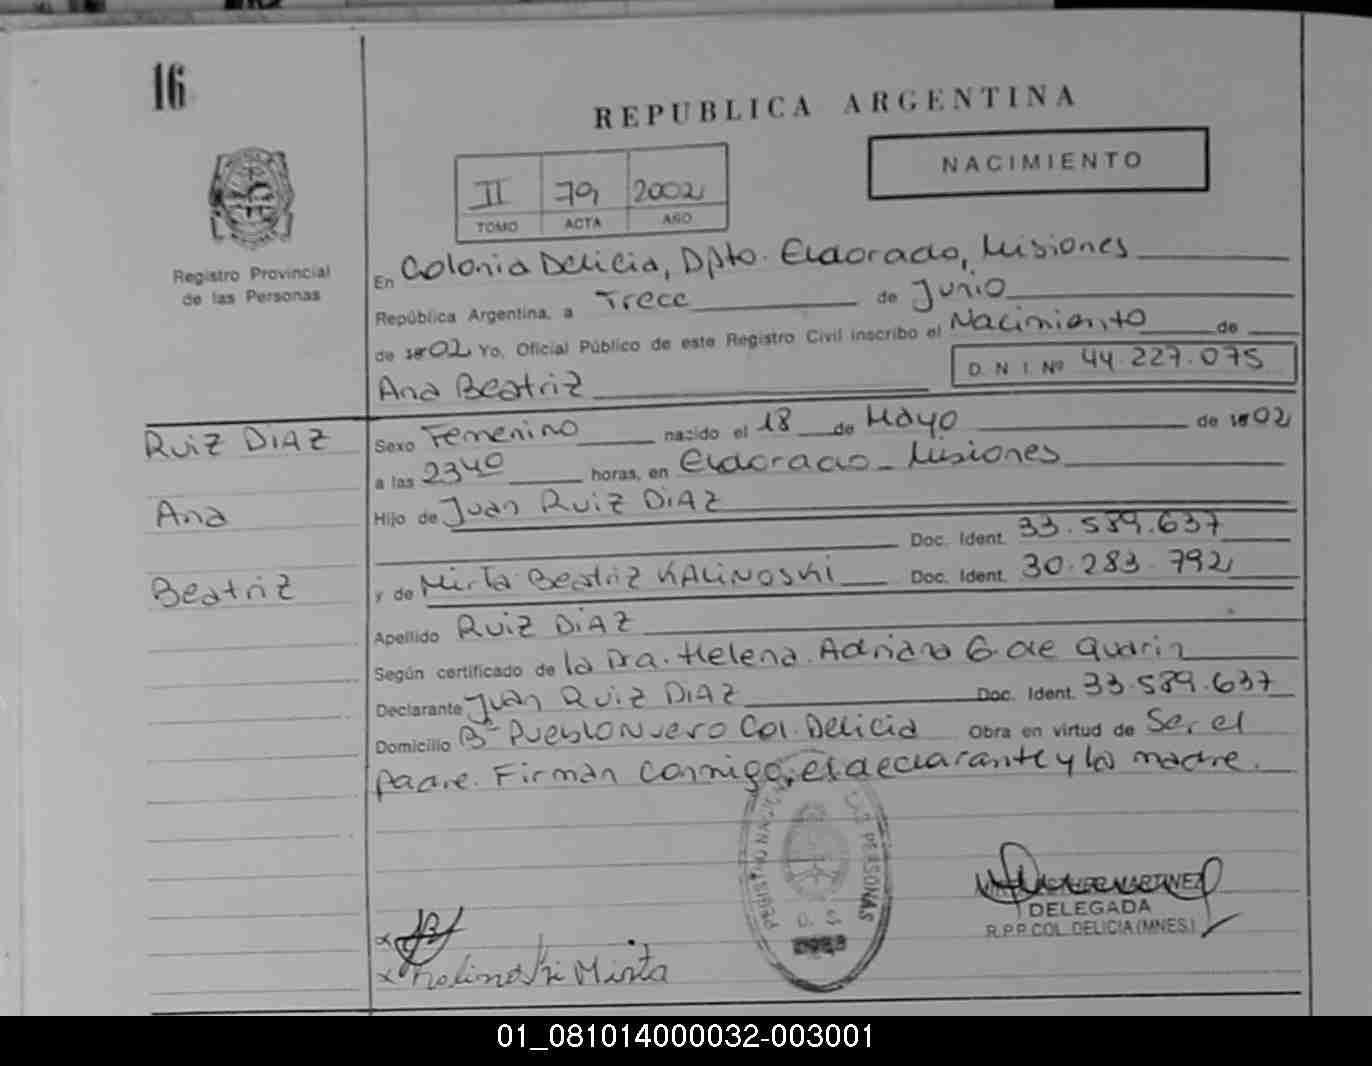 16
REPUBLICA ARGENTINA
NACIMIENTO
II 79 2002
TOMO ACTA AÑO
Registro Provincial
de las Personas
En Colonia Delicia, Dpto. Eldorado, Misiones
República Argentina, a Trece de Junio
de 02 Yo, Oficial Público de este Registro Civil inscribo el Nacimiento de
Ana Beatriz
D. N. I. Nº 44.227.075
Ruiz DiAZ
Ana
Beatriz
Sexo Femenino nacido el 18 de Mayo de 02
a las 2340 horas, en Eldorado - Misiones
Hijo de Juan Ruiz DiAZ
Doc. Ident. 33.589.637
y de Mirta Beatriz KALiNOSKi Doc. Ident. 30.283.792
Apellido Ruiz DiAZ
Según certificado de la Dra. Helena Adriana G. de Quarin
Declarante Juan Ruiz DiAZ Doc. Ident. 33.589.637
Domicilio Bº Pueblo Nuevo Col. Delicia Obra en virtud de Ser el
padre. Firman conmigo, el declarante y la madre.
REGISTRO PERSONAS
MARTINEZ
DELEGADA
R.P.P. COL. DELICIA (MNES.)
x
x Kalinoski Mirta
01_081014000032-003001